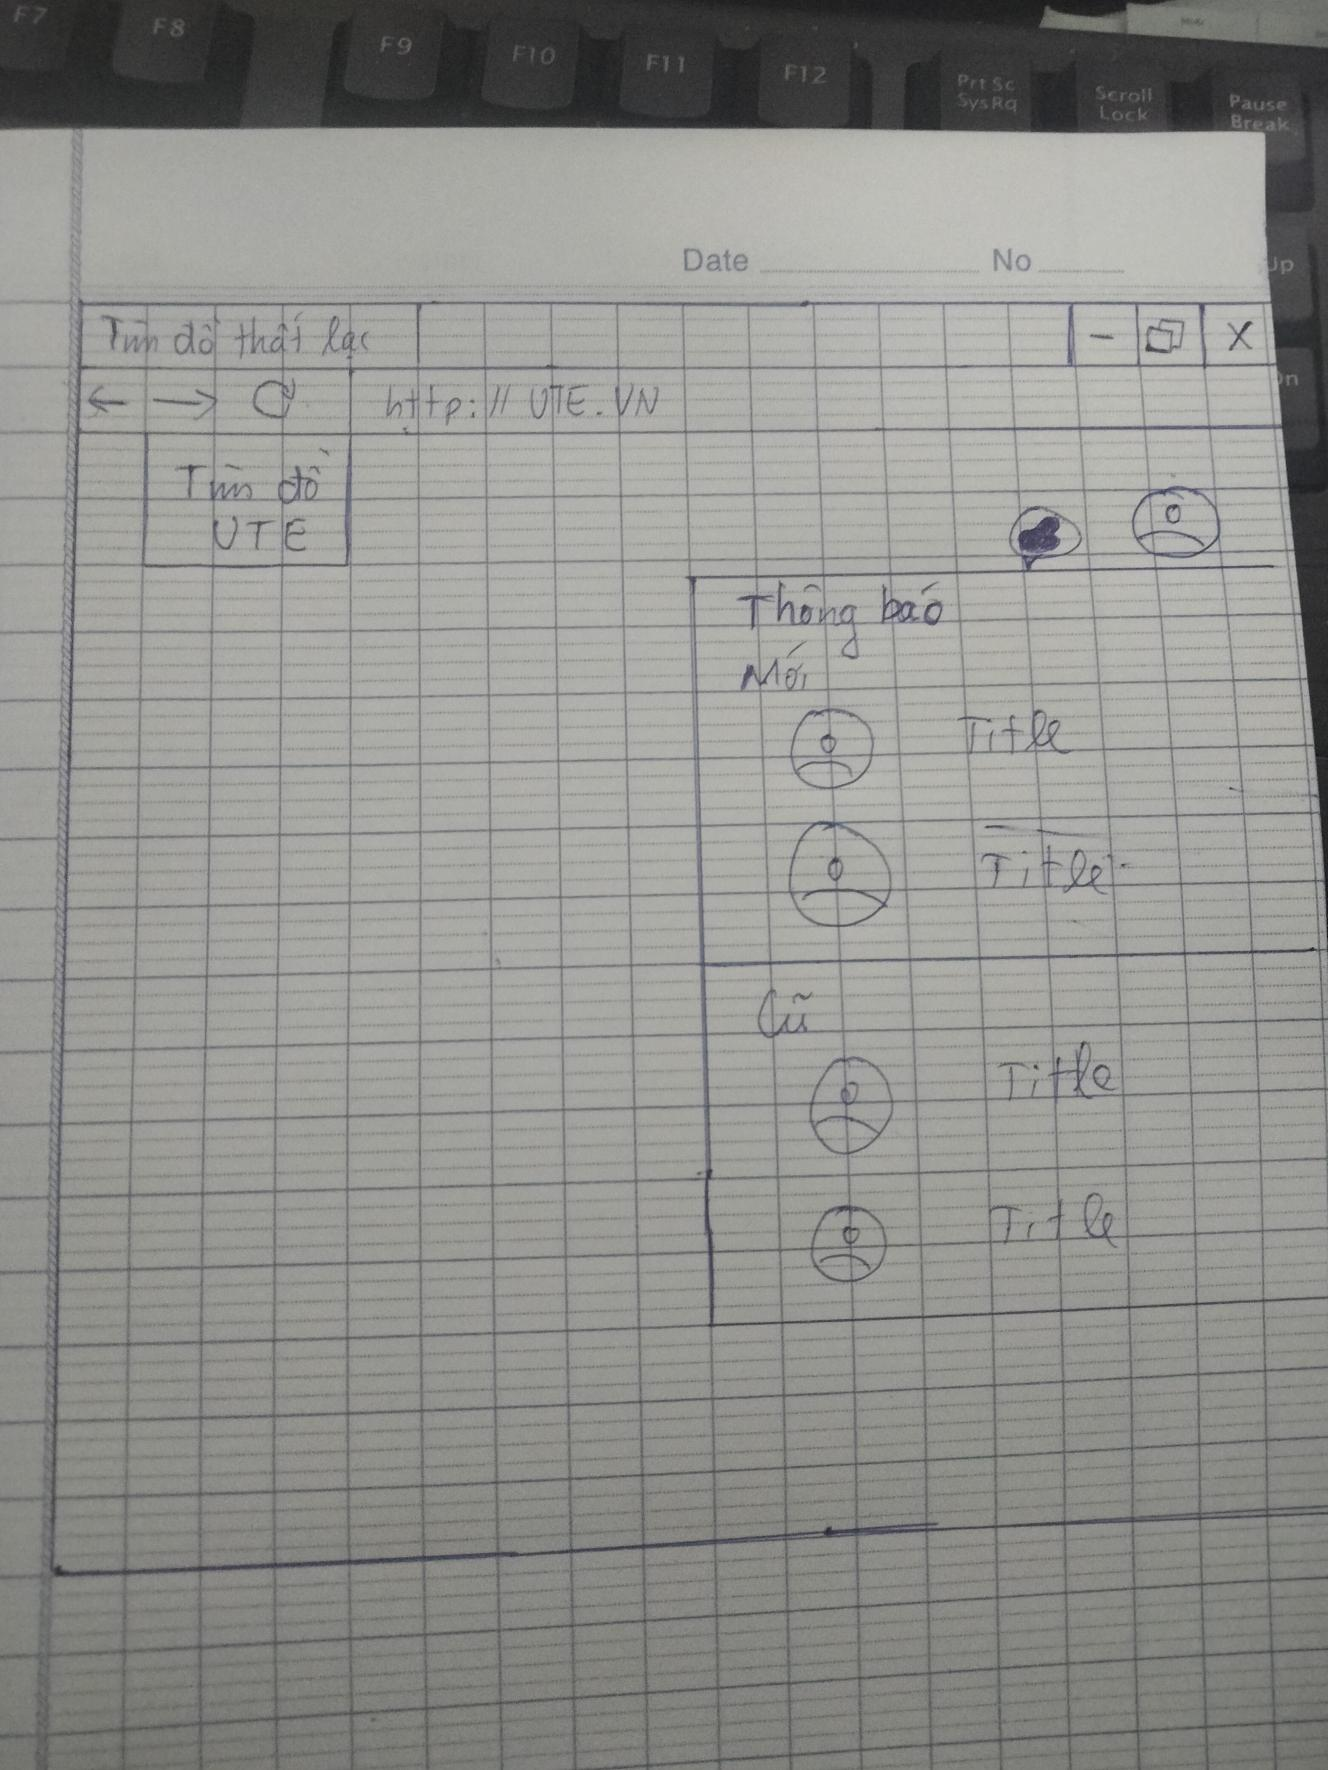 F7 F8 F9 F10 F11 F12 Prt Sc SysRq Scroll Lock Pause Break
Date No
Tìm đồ thất lạc - X
http://UTE.VN
Tìm đồ
UTE
Thông báo
Mới
Title
Title
Cũ
Title
Title